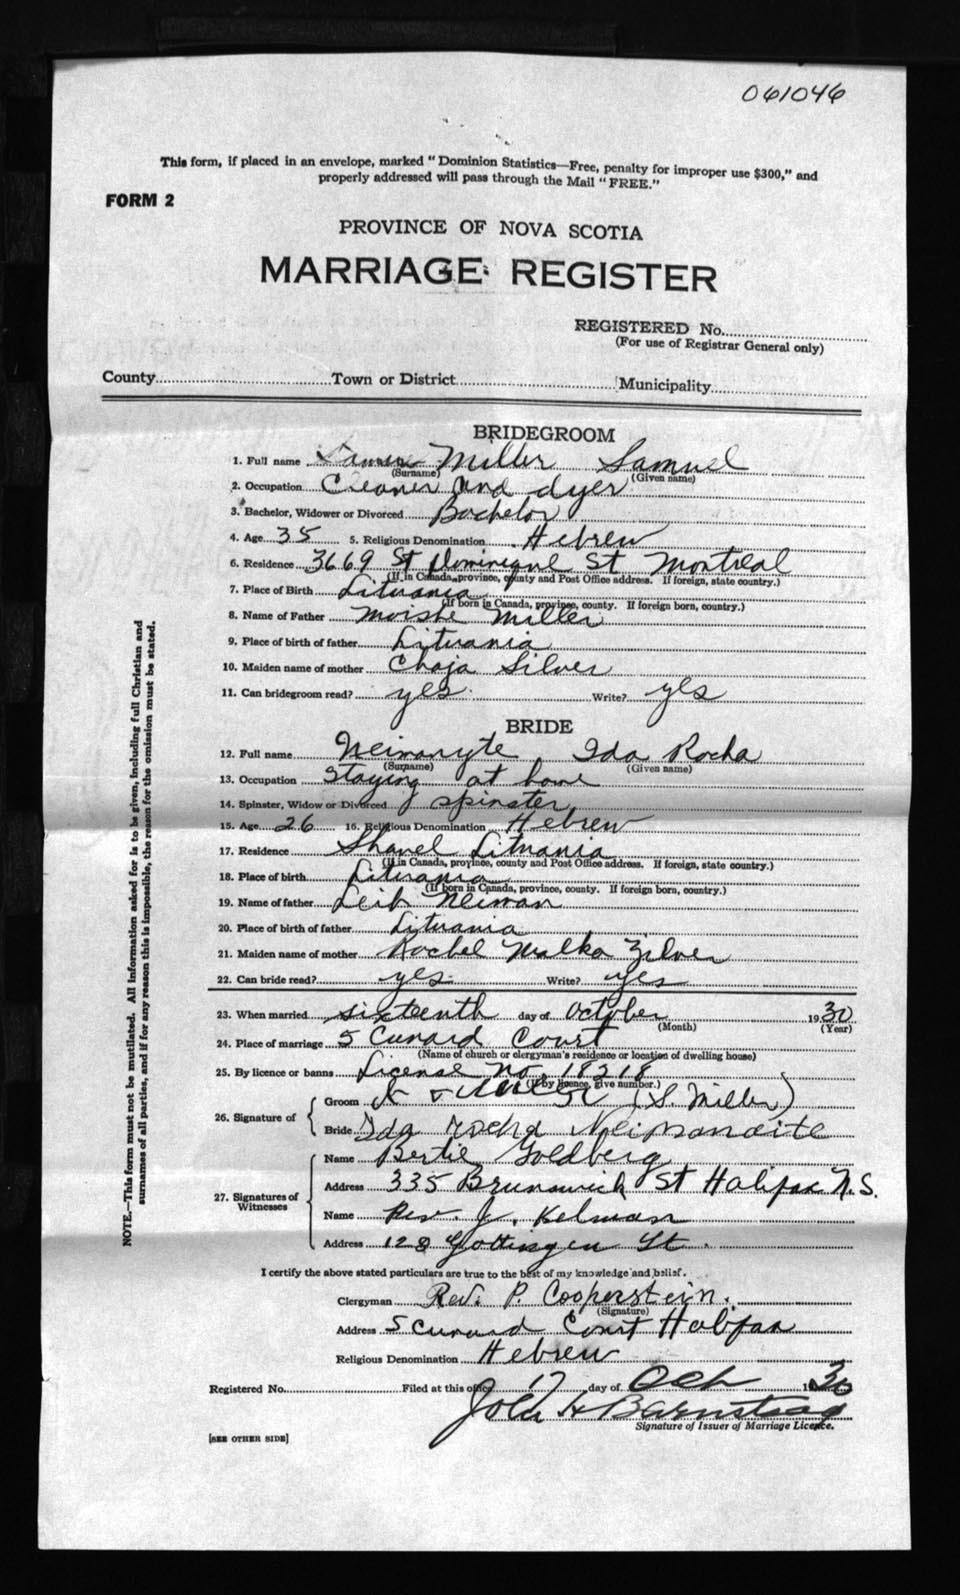 061046
This form, if placed in an envelope, marked "Dominion Statistics—Free, penalty for improper use $300," and
properly addressed will pass through the Mail "FREE."
FORM 2
PROVINCE OF NOVA SCOTIA
MARRIAGE REGISTER
REGISTERED No.
(For use of Registrar General only)
County Town or District Municipality
BRIDEGROOM
1. Full name Miller Samuel
(Surname) (Given name)
2. Occupation Cleaner and dyer
3. Bachelor, Widower or Divorced Bachelor
4. Age 35 5. Religious Denomination Hebrew
6. Residence 3669 St Dominique St Montreal
(If in Canada, province, county and Post Office address. If foreign, state country.)
7. Place of Birth Lituania
(If born in Canada, province, county. If foreign born, country.)
8. Name of Father Moishe Miller
9. Place of birth of father Lituania
10. Maiden name of mother Chaja Silver
11. Can bridegroom read? yes. Write? yes
BRIDE
12. Full name Neimanyte Ida Rocha
(Surname) (Given name)
13. Occupation Staying at home
14. Spinster, Widow or Divorced spinster
15. Age 26 16. Religious Denomination Hebrew
17. Residence Shavel Lituania
(If in Canada, province, county and Post Office address. If foreign, state country.)
18. Place of birth Lituania
(If born in Canada, province, county. If foreign born, country.)
19. Name of father Leib Neiman
20. Place of birth of father Lituania
21. Maiden name of mother Rachel Malka Zilver
22. Can bride read? yes Write? yes
23. When married sixteenth day of October 1930
(Month) (Year)
24. Place of marriage 5 Cunard Court
(Name of church or clergyman's residence or location of dwelling house)
25. By licence or banns License no. 18218
(If by licence, give number.)
26. Signature of
Groom (S. Miller)
Bride Ida Rocha Neimanaite
27. Signatures of Witnesses
Name Bertie Goldberg
Address 335 Brunswick St Halifax N.S.
Name Rev. J. Kelman
Address 128 Gottingen St.
I certify the above stated particulars are true to the best of my knowledge and belief.
Clergyman Rev. P. Cooperstein.
(Signature)
Address 5 Cunard Court Halifax
Religious Denomination Hebrew
Registered No. Filed at this office 17 day of Oct 1930
John H Barnstead
Signature of Issuer of Marriage Licence.
[SEE OTHER SIDE]
NOTE.—This form must not be mutilated. All information asked for is to be given, including full Christian and
surnames of all parties, and if for any reason this is impossible, the reason for the omission must be stated.